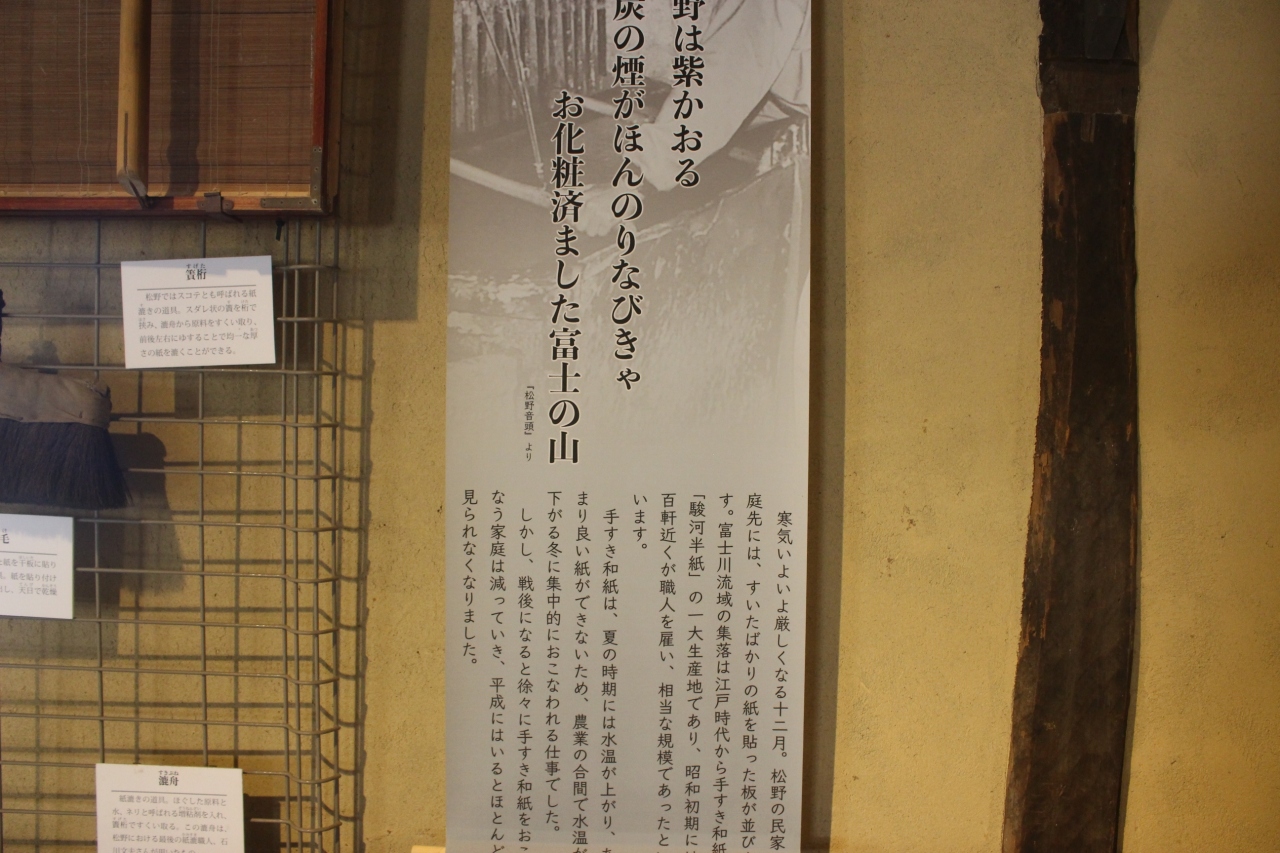 野は紫かおる
炭の煙がほんのりなびきゃ
お化粧済ました富士の山
『松野音頭』より
寒気いよいよ厳しくなる十二月。松野の民家
庭先には、すいたばかりの紙を貼った板が並び
す。富士川流域の集落は江戸時代から手すき和紙
「駿河半紙」の一大生産地であり、昭和初期に
百軒近くが職人を雇い、相当な規模であったと
います。
手すき和紙は、夏の時期には水温が上がり、
まり良い紙ができないため、農業の合間で水温が
下がる冬に集中的におこなわれる仕事でした。
しかし、戦後になると徐々に手すき和紙をおこ
なう家庭は減っていき、平成にはいるとほとんど
見られなくなりました。
簀桁
松野ではスコテとも呼ばれる紙
漉きの道具。スダレ状の簀を桁で
挟み、漉舟から原料をすくい取り、
前後左右にゆすることで均一な厚
さの紙を漉くことができる。
毛
紙を干板に貼り
紙を貼り付け
し、天日で乾燥
漉舟
紙漉きの道具。ほぐした原料と
水、ネリと呼ばれる増粘剤を入れ、
簀桁ですくい取る。この漉舟は、
松野における最後の紙漉職人、石